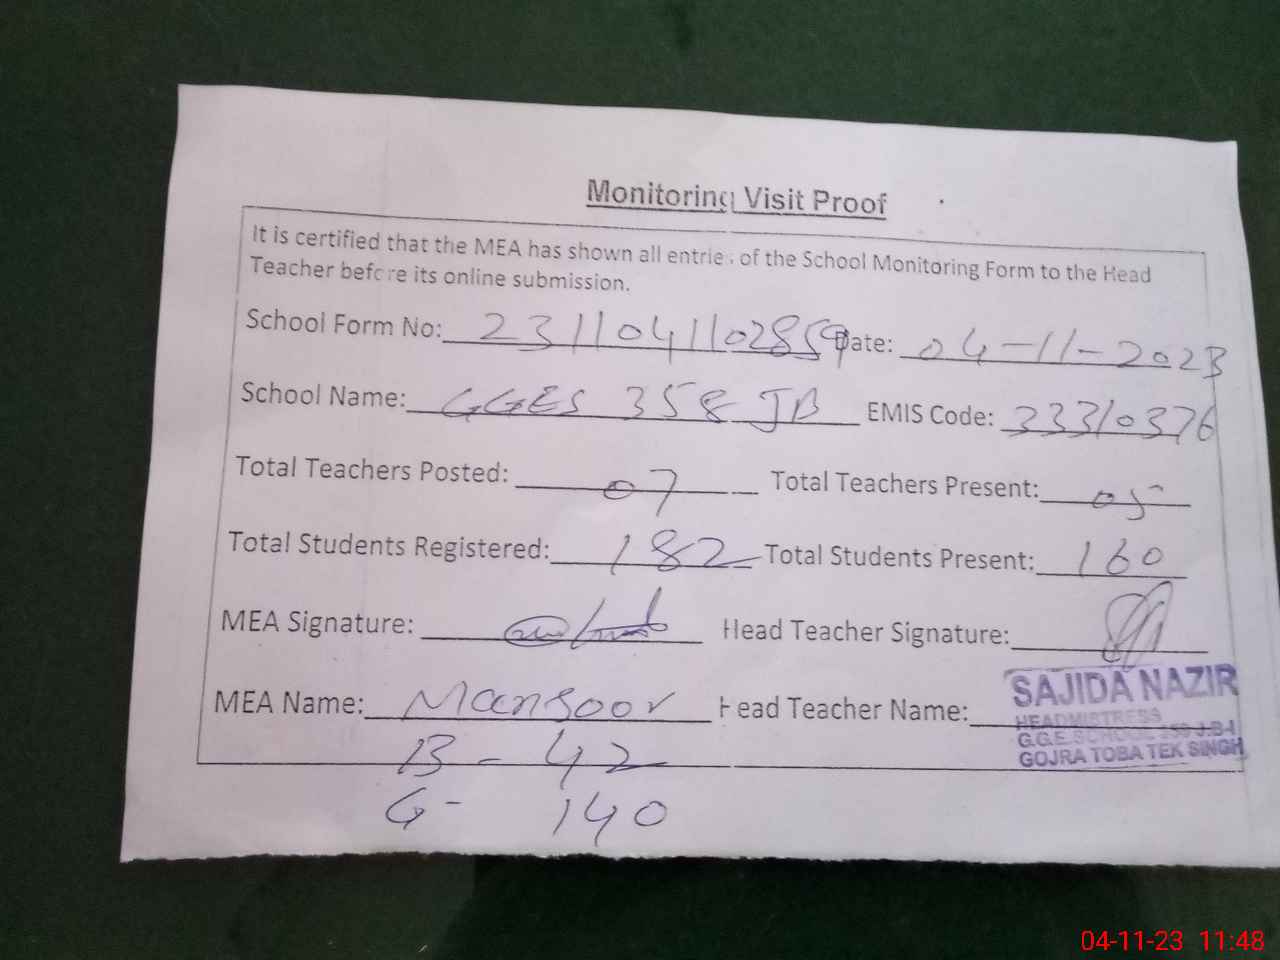 Monitoring Visit Proof
It is certified that the MEA has shown all entries of the School Monitoring Form to the Head
Teacher before its online submission.
School Form No: 2311041102859 Date: 04-11-2023
School Name: GGES 358 JB EMIS Code: 33310376
Total Teachers Posted: 07 Total Teachers Present: 05
Total Students Registered: 182 Total Students Present: 160
MEA Signature: Head Teacher Signature:
MEA Name: Mansoor Head Teacher Name: SAJIDA NAZIR
HEADMISTRESS
G.G.E SCHOOL 358 J.B-I
GOJRA TOBA TEK SINGH
B - 42
G - 140
04-11-23 11:48